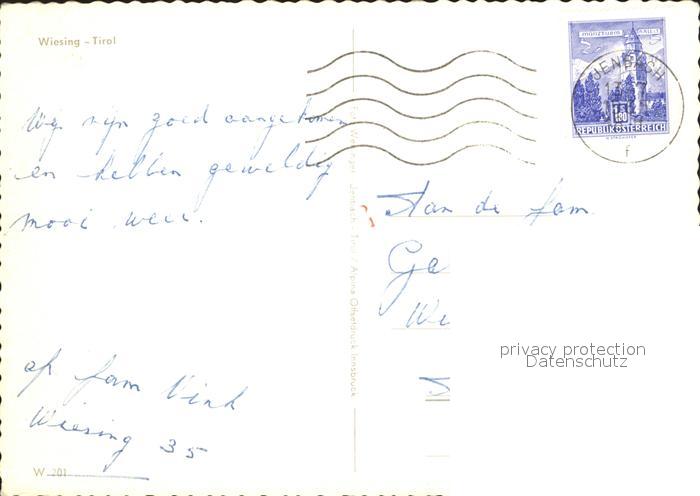 Wiesing - Tirol
Wij zijn goed aangekomen
en hebben geweldig
mooi weer.
afz fam Vink
Wiesing 35
W 201
Jenbach - Tirol / Alpina Offsetdruck Innsbruck
münzturm
REPUBLIK ÖSTERREICH
JENBACH
f
Aan de fam.
Ge
We
privacy protection
Datenschutz